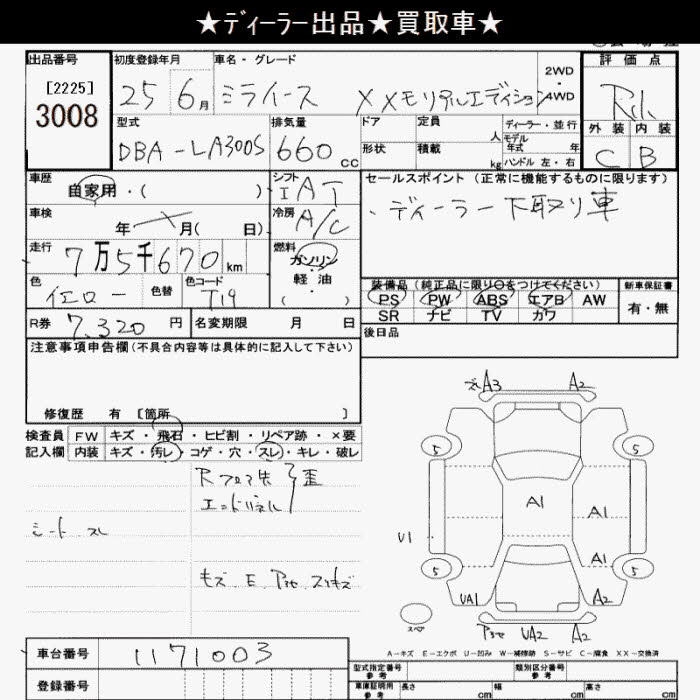 ★ディーラー出品★買取車★
出品番号 初度登録年月 車名・グレード 2WD 4WD 評価点
[2225]
3008 25 6月 ミライース ××モリアルエディション
型式 排気量 ドア 定員 人 ディーラー・並行 外装 内装
DBA-LA300S 660cc 形状 積載 kg モデル年式 年 ハンドル 左・右 C B
車歴 自家用・( ) シフト IAT セールスポイント (正常に機能するものに限ります)
車検 年 月( 日) 冷房 A/C ・ディーラー下取り車
走行 7万5千670km 燃料 ガソリン・軽油・( )
色 イエロー 色替 色コード T19 装備品 (純正品に限り○をつけてください) 新車保証書
PS PW ABS エアB AW 有・無
SR ナビ TV カワ
R券 7,320円 名変期限 月 日 後日品
注意事項申告欄(不具合内容等は具体的に記入して下さい)
修復歴 有 〔箇所 〕
検査員 FW キズ・飛石・ヒビ割・リペア跡・×要
記入欄 内装 キズ・汚レ・コゲ・穴・スレ・キレ・破レ
Rフロア先 歪
エンドパネル
シート スレ
キズ E Pヨセ スリキズ
A3 A2
5 5
A1 A1
U1
A1
5 5
UA1 A2
スペア Pヨセ UA2 A2
A-キズ E-エクボ U-凹み W-補修跡 S-サビ C-腐食 XX-交換済
車台番号 1171003
型式指定番号 参考 類別区分番号 参考
登録番号
車庫証明用 参考 長さ cm 幅 cm 高さ cm